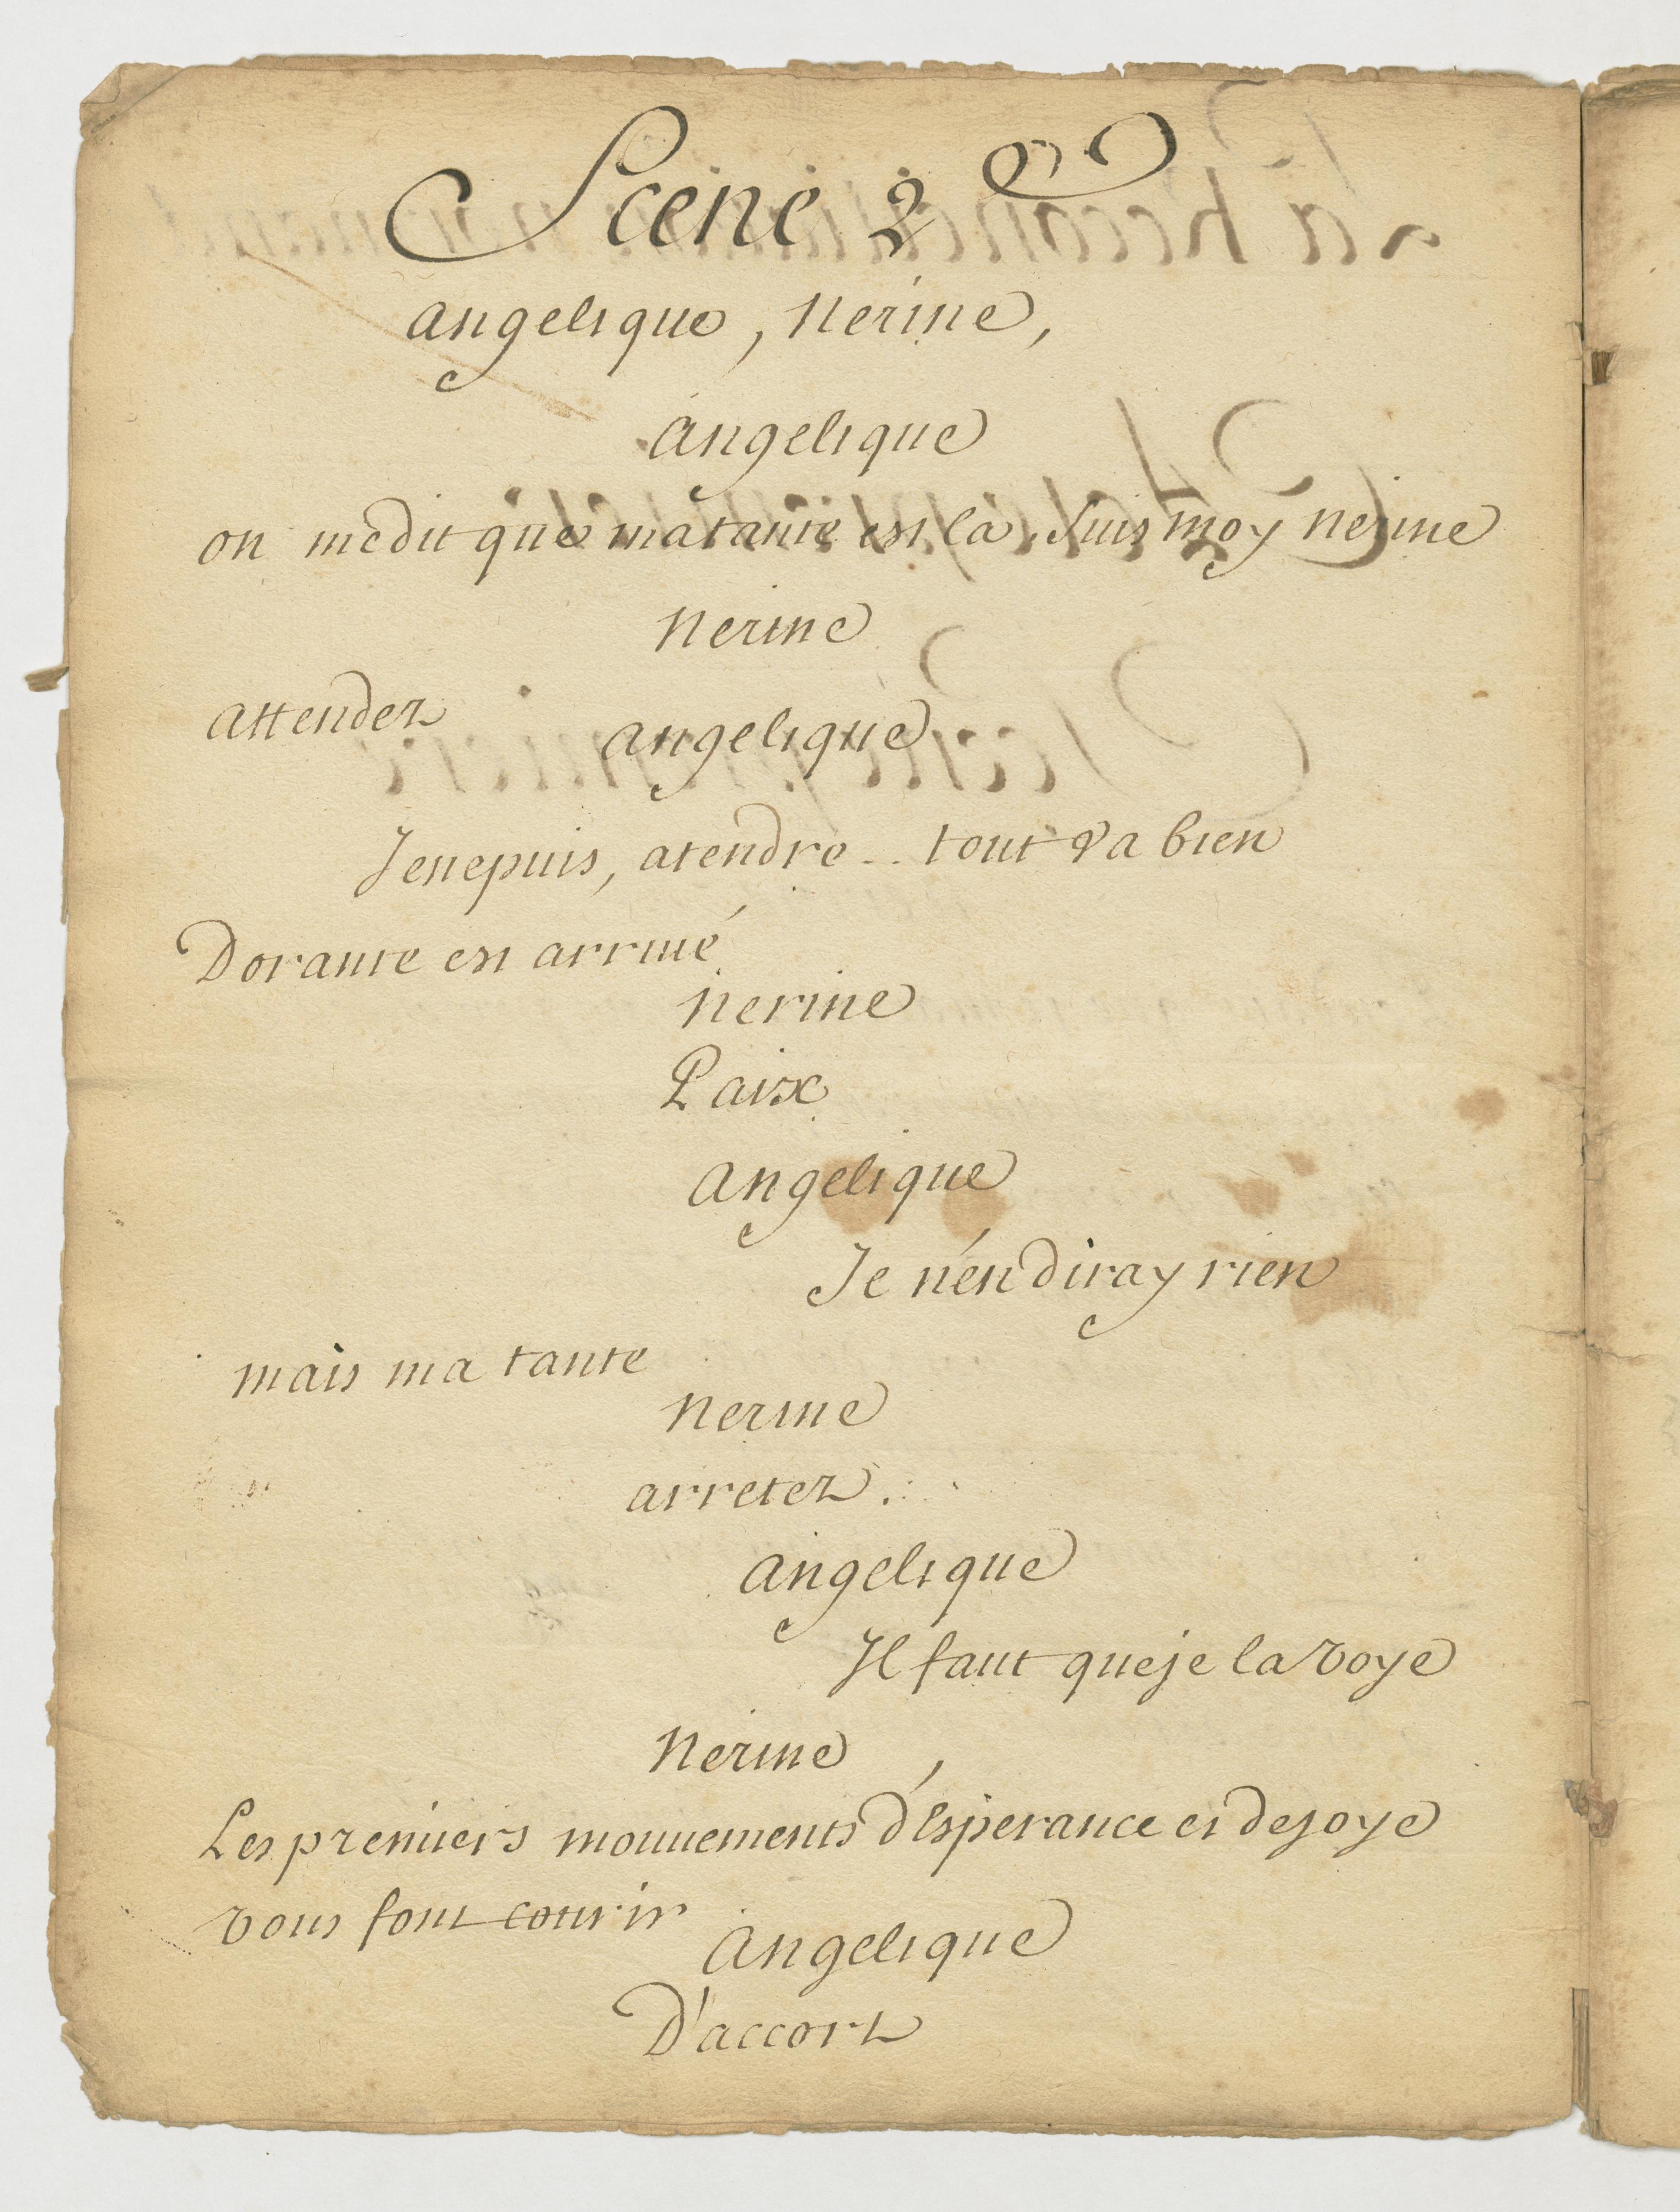 Scene 2
angelique, Nerine,
angelique
on medit que matante est là. Suis moy nerine
nerine
attendez
angelique
Jenepuis, atendre .. tout va bien
Dorante est arriué
nerine
Paix
angelique
Je n'en diray rien
mais ma tante
nerine
arretez.
angelique
Il faut queje la voye
Nerine
Les premiers mouuements d'Esperance et dejoye
vous font courir
angelique
D'accort